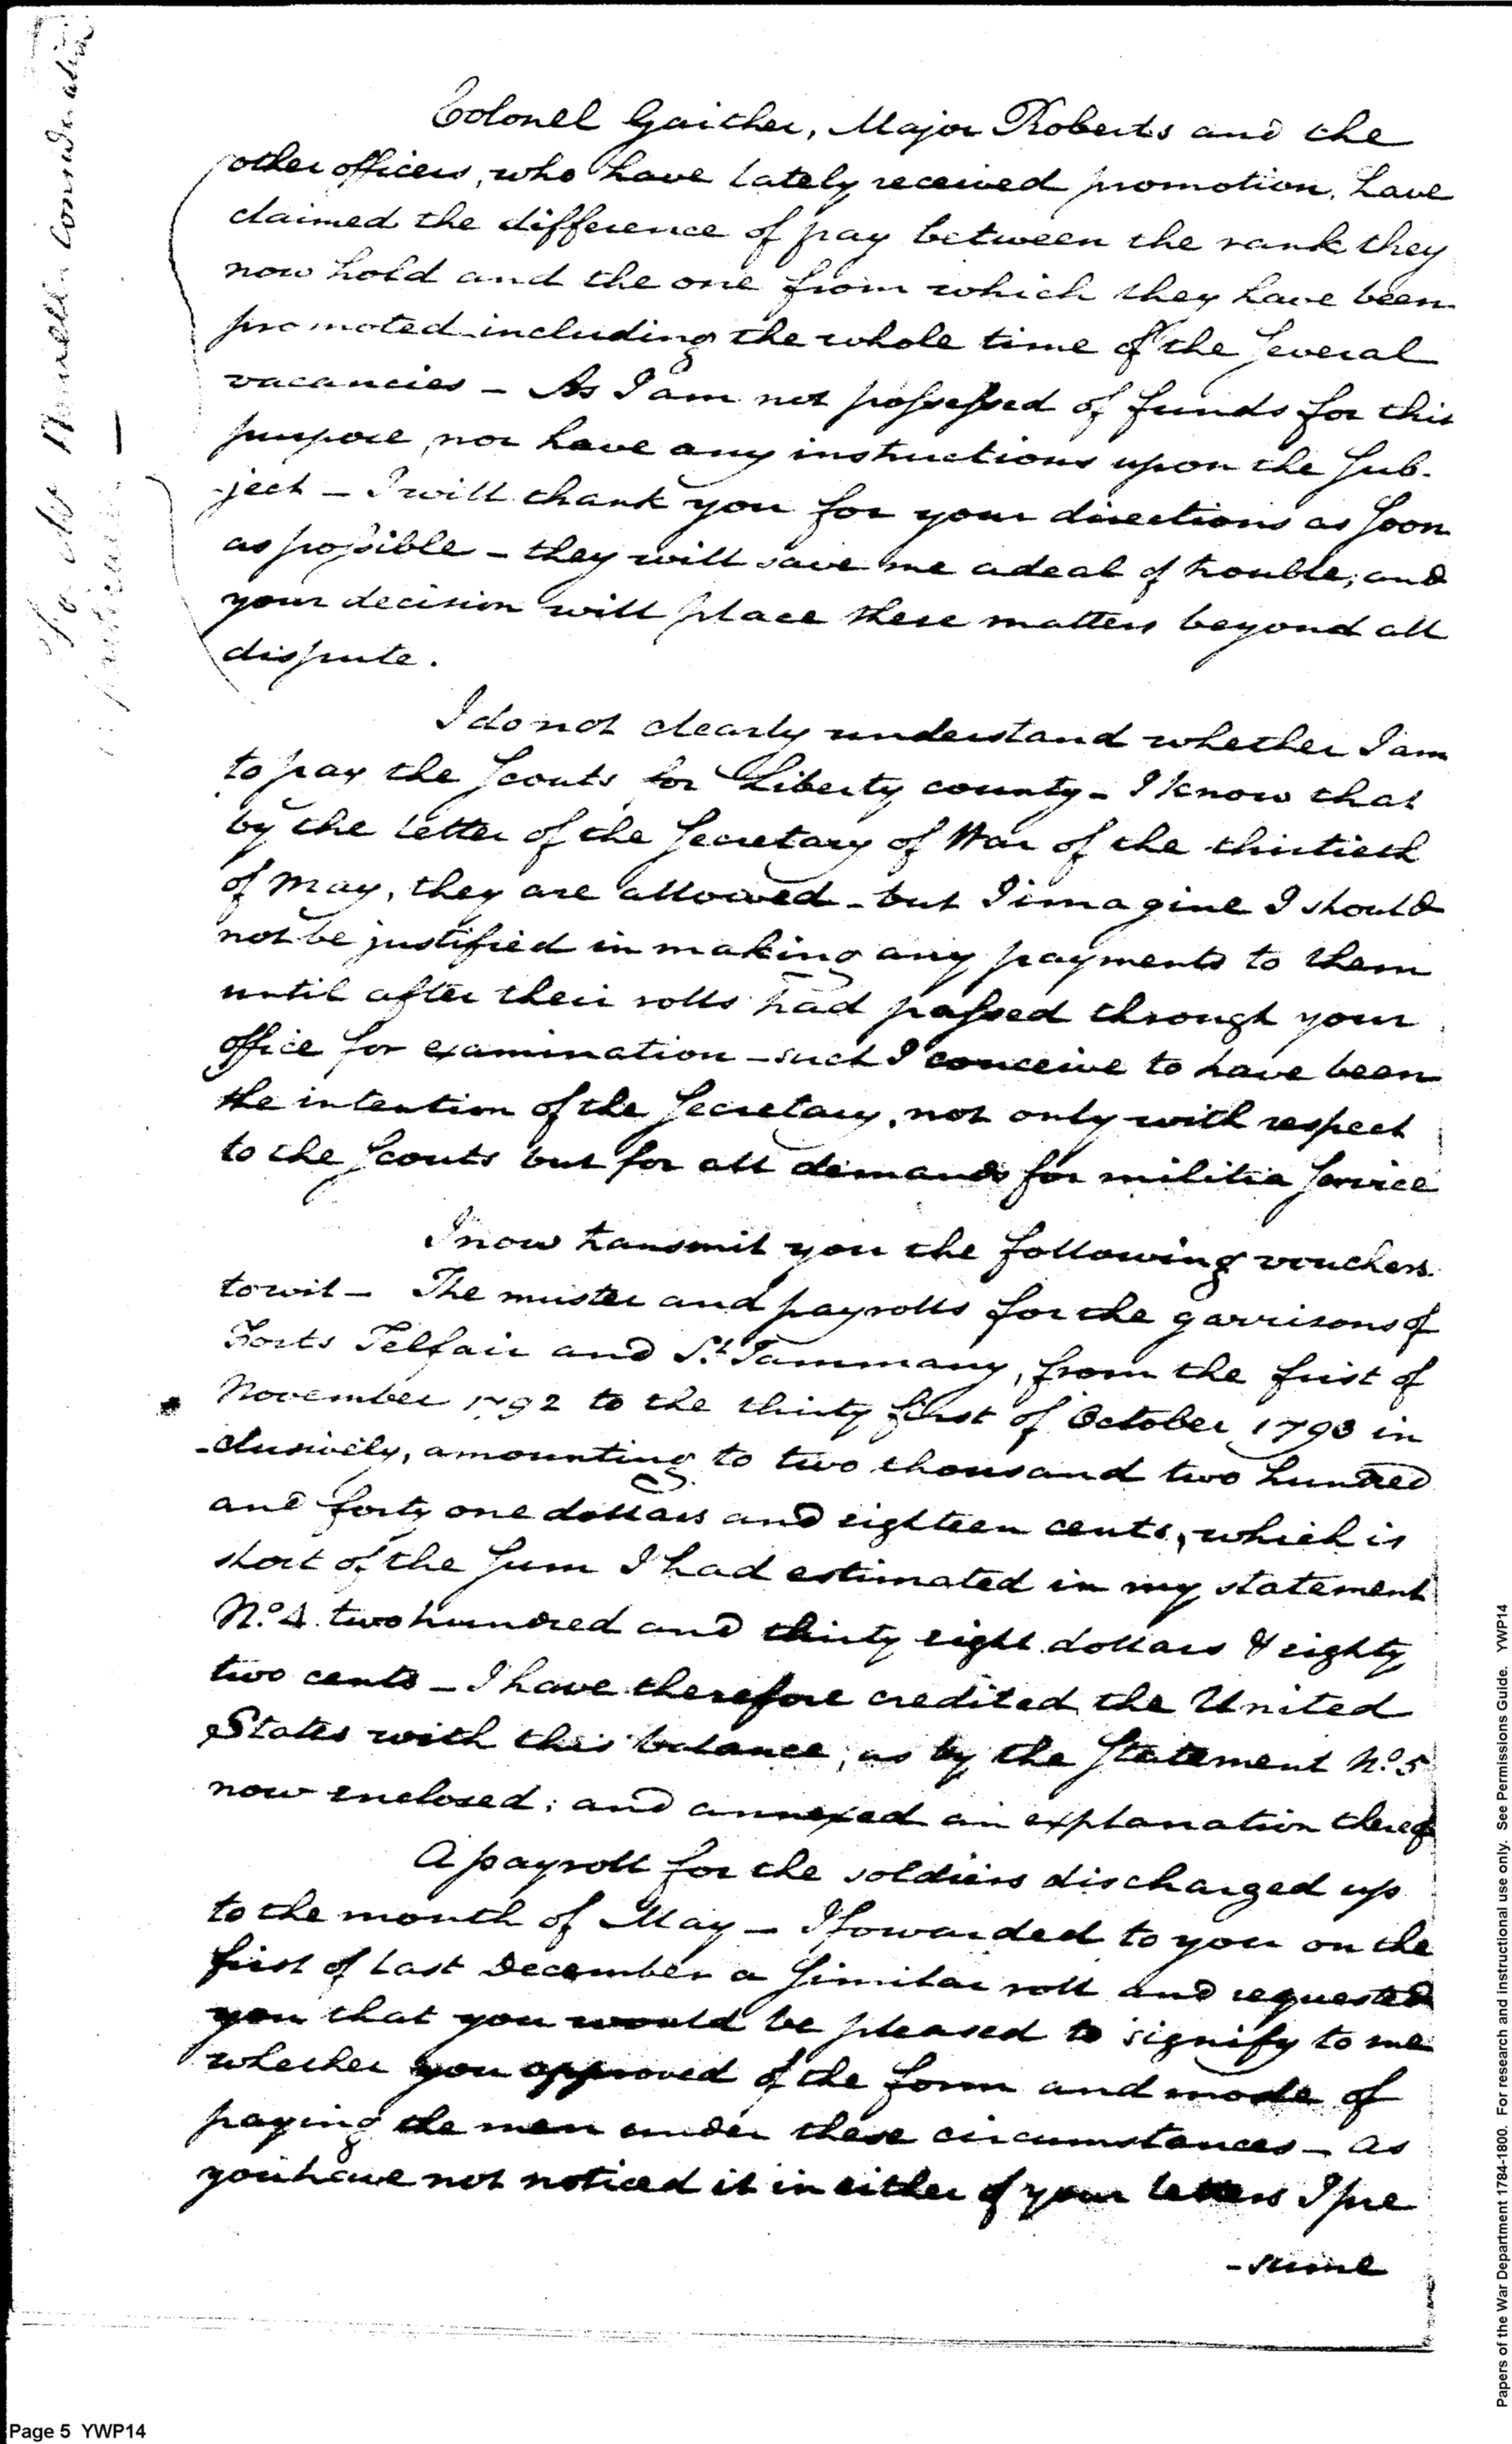 Colonel Gaither, Major Roberts and the
other officers, who have lately received promotion, have
claimed the difference of pay between the rank they
now hold and the one from which they have been
promoted including the whole time of the several
vacancies – As I am not possessed of funds for this
purpose, nor have any instructions upon the sub-
-ject – I will thank you for your directions as soon
as possible – they will save me a deal of trouble; and
your decision will place these matters beyond all
dispute.
I do not clearly understand whether I am
to pay the scouts for Liberty county – I know that
by the letter of the Secretary of War of the thirtieth
of May, they are allowed – but I imagine I should
not be justified in making any payments to them
until after their rolls had passed through your
office for examination – such I conceive to have been
the intention of the Secretary, not only with respect
to the scouts but for all demands for militia service
I now transmit you the following vouchers.
to wit – The muster and payrolls for the garrisons of
Forts Telfair and St. Tammany, from the first of
November 1792 to the thirty first of October 1793 in
-clusively, amounting to two thousand two hundred
and forty one dollars and eighteen cents, which is
short of the sum I had estimated in my statement
No. 4. two hundred and thirty eight dollars & eighty
two cents – I have therefore credited the United
States with this balance, as by the statement No. 5
now enclosed; and annexed an explanation thereof
A payroll for the soldiers discharged up
to the month of May – I forwarded to you on the
first of last December a similar roll and requested
you that you would be pleased to signify to me
whether you approved of the form and mode of
paying the men under these circumstances – as
you have not noticed it in either of your letters I pre
-sume
To Mr Consideration
Papers of the War Department 1784-1800. For research and instructional use only. See Permissions Guide. YWP14
Page 5 YWP14